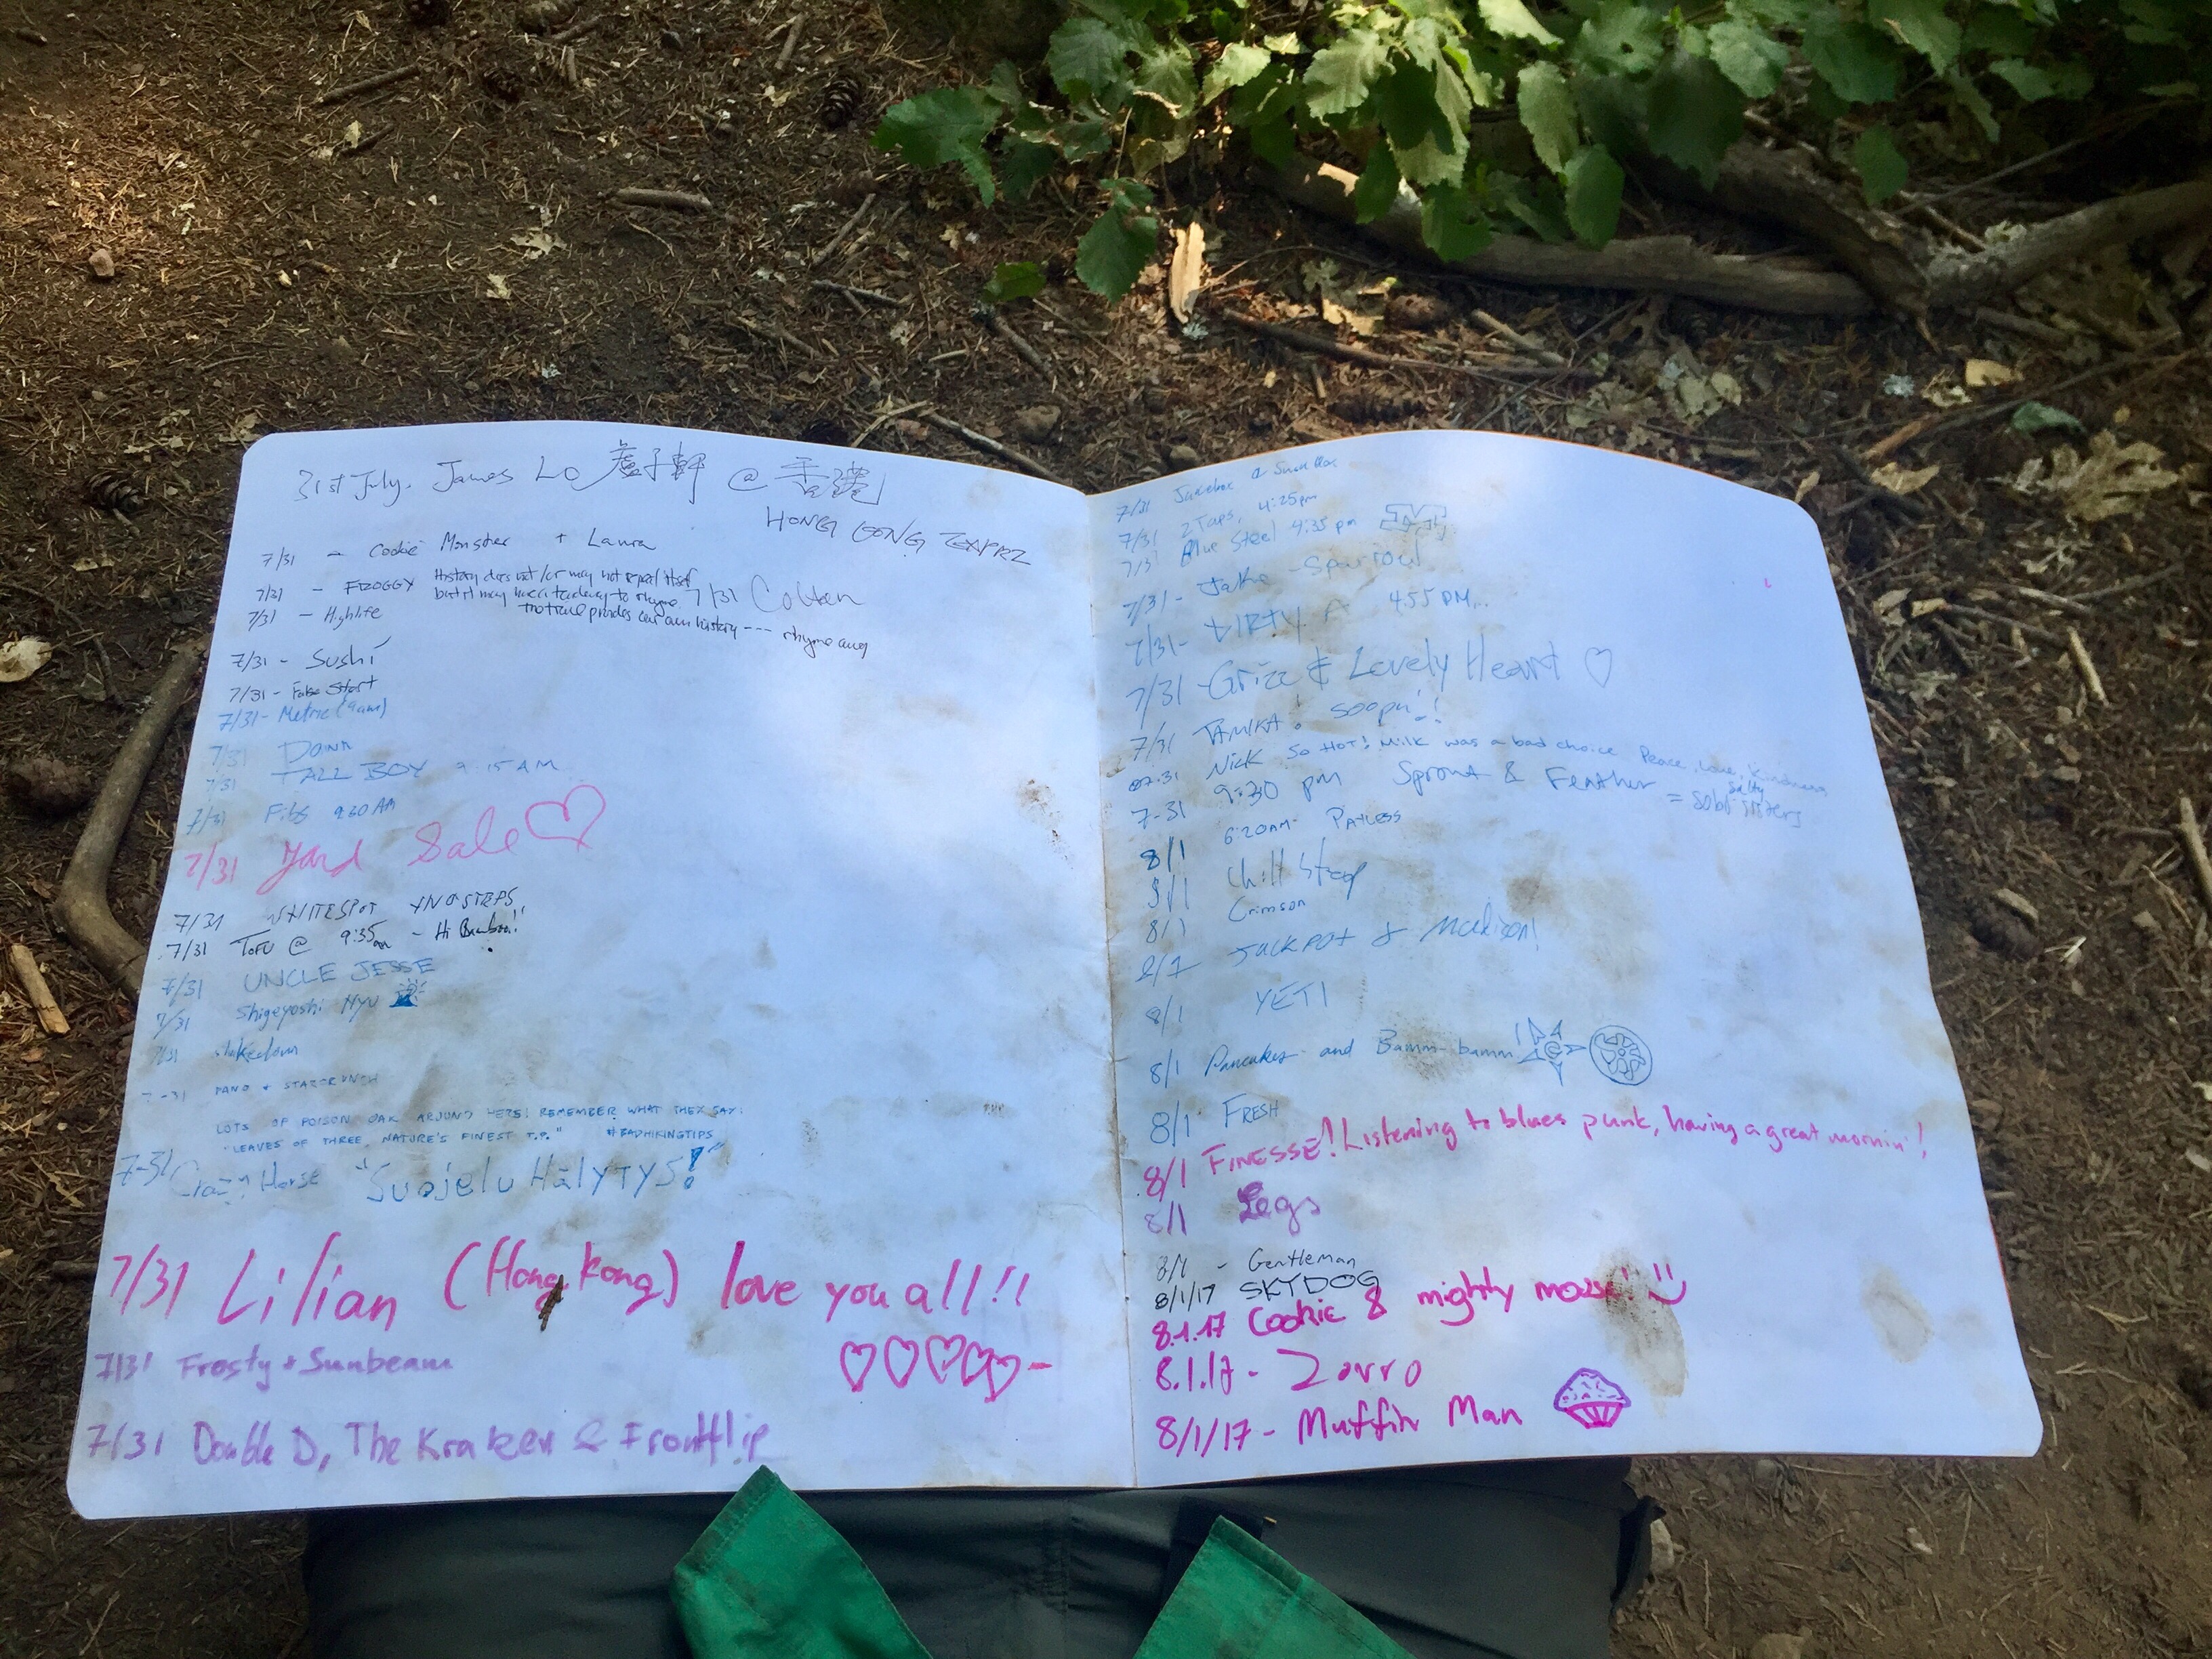 31st July. James Lo 盧子軒 @ 香港
HONG KONG
7/31 - Cookie Monster + Laura
7/31 - FROGGY History does not/or may not repeat itself
but it may have a tendency to rhyme. 7/31 Colten
7/31 - Highlife
the trail provides our own history --- rhyme
7/31 - Sushi
7/31 - False Start
7/31 - Metric (9am)
7/31
7/31 TALL BOY 9:15 AM
7/31 9:30 AM
7/31 Yard Sale ♡
7/31 WHITESPOT
7/31 TOFU @ 9:35am - Hi Bamboo!!
7/31 UNCLE JESSE
7/31 Shigeyoshi
7/31
7-31 PANO + STARCRUNCH
LOTS OF POISON OAK AROUND HERE! REMEMBER WHAT THEY SAY:
"LEAVES OF THREE, NATURE'S FINEST T.P." #BADHIKINGTIPS
7-31 Crazy Horse "Suojelu Hälytys!"
7/31 Lilian (Hong Kong) love you all!!
♡♡♡♡♡
7/31 Frosty + Sunbeam
7/31 Double D, The Kraken & Frontflip
7/31
7/31 2 Taps, 4:25pm
7/31 Blue Steel 4:35 pm M
7/31 - Jake Sparrow
7/31 - DIRTY 4:55 PM..
7/31 Grizz & Lovely Heart ♡
7/31 TAMIKA! soopn'!
07.31 Nick So HOT! Milk was a bad choice Peace, Love, Kindness
7-31 9:30 pm Sprout & Feather = salty sisters
8/1 6:20AM- PAYLESS
8/1 Chill
8/1 Crimson
8/1 Jackpot & Madison!
8/1 YETI
8/1 Pancakes and Bamm-bamm
8/1 FRESH
8/1 FINESSE! Listening to blues punk, having a great mornin'!
8/1 Legs
8/1 - Gentleman
8/1/17 SKYDOG
8.1.17 Cookie & mighty mouse! :)
8.1.17 - Zorro
8/1/17 - Muffin Man